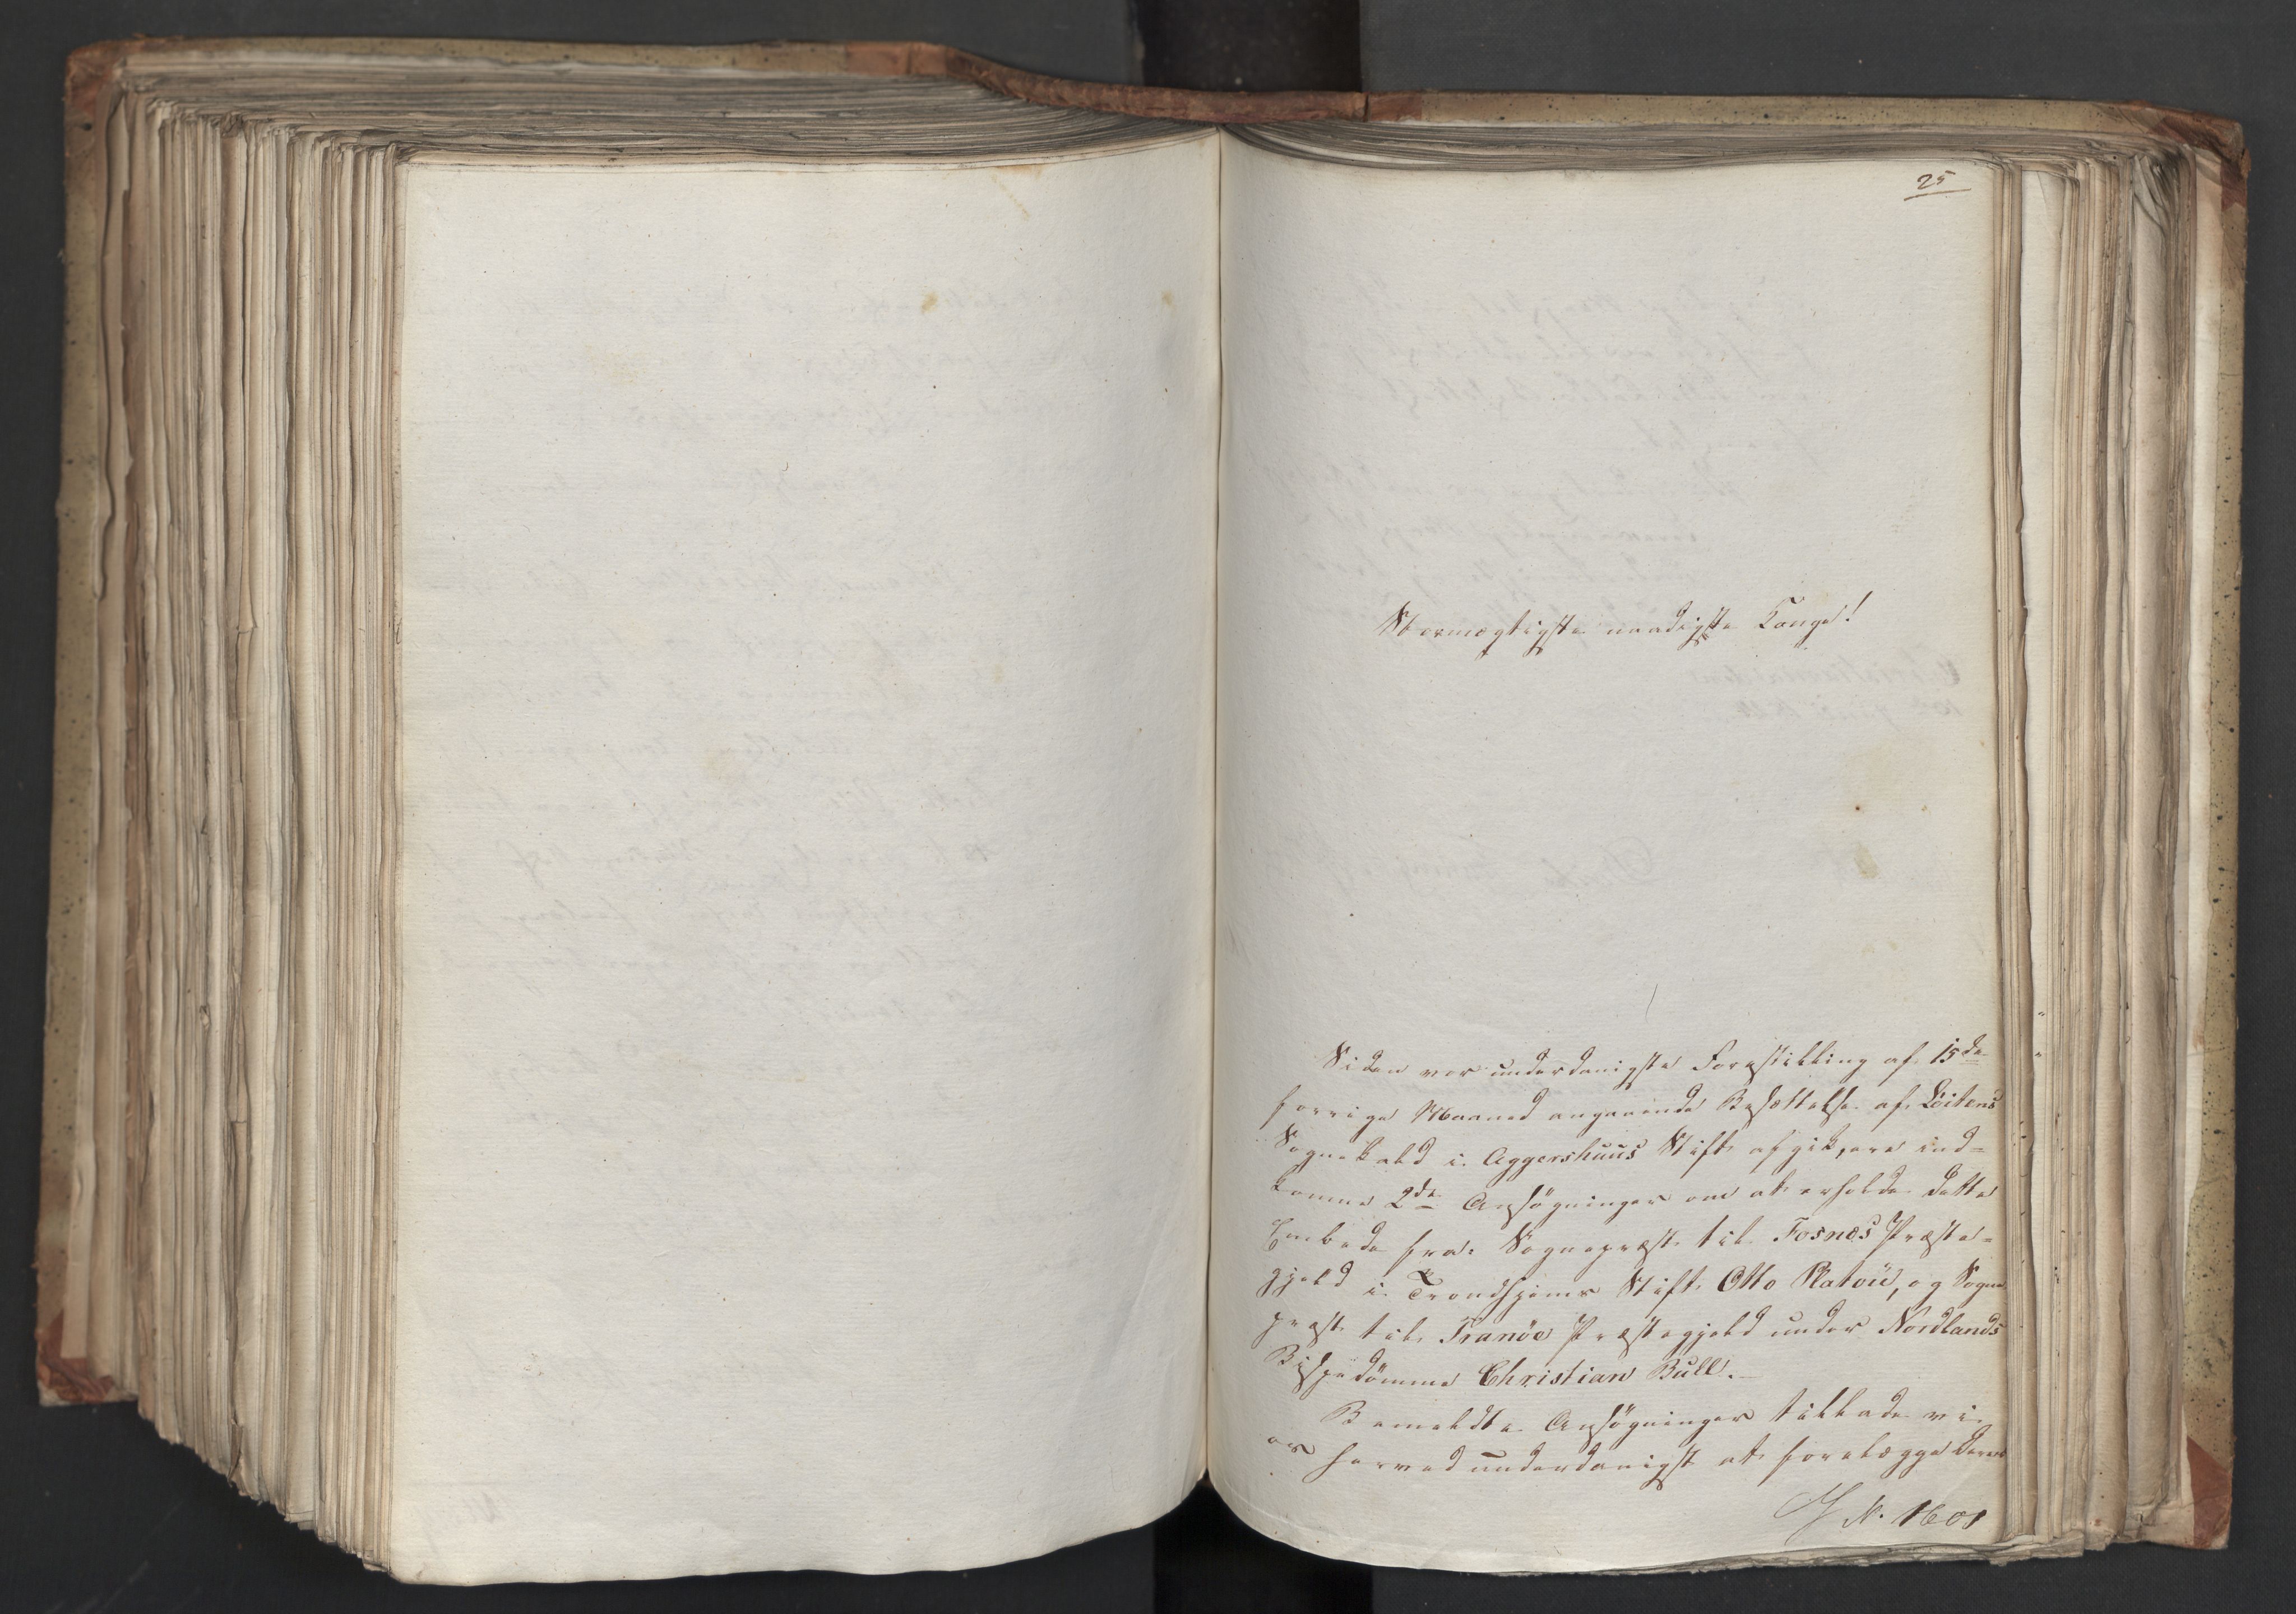 25
Stormægtigste naadigste Konge!
Siden vor underdanigste Forestilling af 15de
forrige Maaned angaaende Besættelse af Löitens
Sognekald i Aggershuus Stift afgik, ere ind=
komne 2de Ansögninger om at erholde dette
Embede fra: Sognepræst til Fosnes Præste=
gjeld i Trondhjems Stift Otto Ratvii, og Sogne
præst til Tranöe Præstegjeld under Nordlands
Bispedömme Christian Bull.—
Bemeldte Ansögninger tillade vi
os herved underdanigst at forelægge Deres
J. N. 1601